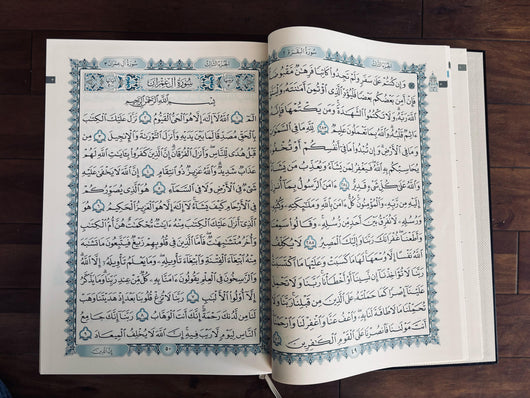 الجزء الثالث
سُورَةُ البَقَرَةِ
۞ وَإِن كُنتُمْ عَلَىٰ سَفَرٍ وَلَمْ تَجِدُوا۟ كَاتِبًا فَرِهَٰنٌ مَّقْبُوضَةٌ
فَإِنْ أَمِنَ بَعْضُكُم بَعْضًا فَلْيُؤَدِّ ٱلَّذِى ٱؤْتُمِنَ أَمَٰنَتَهُۥ وَلْيَتَّقِ
ٱللَّهَ رَبَّهُۥ وَلَا تَكْتُمُوا۟ ٱلشَّهَٰدَةَ وَمَن يَكْتُمْهَا فَإِنَّهُۥٓ
ءَاثِمٌ قَلْبُهُۥ وَٱللَّهُ بِمَا تَعْمَلُونَ عَلِيمٌ ٢٨٣ لِّلَّهِ مَا فِى ٱلسَّمَٰوَٰتِ
وَمَا فِى ٱلْأَرْضِ وَإِن تُبْدُوا۟ مَا فِىٓ أَنفُسِكُمْ أَوْ تُخْفُوهُ
يُحَاسِبْكُم بِهِ ٱللَّهُ فَيَغْفِرُ لِمَن يَشَآءُ وَيُعَذِّبُ مَن يَشَآءُ
وَٱللَّهُ عَلَىٰ كُلِّ شَىْءٍ قَدِيرٌ ٢٨٤ ءَامَنَ ٱلرَّسُولُ بِمَآ أُنزِلَ
إِلَيْهِ مِن رَّبِّهِۦ وَٱلْمُؤْمِنُونَ كُلٌّ ءَامَنَ بِٱللَّهِ وَمَلَٰٓئِكَتِهِۦ وَكُتُبِهِۦ
وَرُسُلِهِۦ لَا نُفَرِّقُ بَيْنَ أَحَدٍ مِّن رُّسُلِهِۦ وَقَالُوا۟ سَمِعْنَا
وَأَطَعْنَا غُفْرَانَكَ رَبَّنَا وَإِلَيْكَ ٱلْمَصِيرُ ٢٨٥ لَا يُكَلِّفُ
ٱللَّهُ نَفْسًا إِلَّا وُسْعَهَا لَهَا مَا كَسَبَتْ وَعَلَيْهَا مَا ٱكْتَسَبَتْ
رَبَّنَا لَا تُؤَاخِذْنَآ إِن نَّسِينَآ أَوْ أَخْطَأْنَا رَبَّنَا وَلَا تَحْمِلْ
عَلَيْنَآ إِصْرًا كَمَا حَمَلْتَهُۥ عَلَى ٱلَّذِينَ مِن قَبْلِنَا رَبَّنَا وَلَا
تُحَمِّلْنَا مَا لَا طَاقَةَ لَنَا بِهِۦ وَٱعْفُ عَنَّا وَٱغْفِرْ لَنَا وَٱرْحَمْنَآ
أَنتَ مَوْلَىٰنَا فَٱنصُرْنَا عَلَى ٱلْقَوْمِ ٱلْكَٰفِرِينَ ٢٨٦
٤٩
الجزء الثالث
سُورَةُ آلِ عِمْرَان
سُورَةُ آلِ عِمْرَانَ
بِسْمِ ٱللَّهِ ٱلرَّحْمَٰنِ ٱلرَّحِيمِ
الٓمٓ ١ ٱللَّهُ لَآ إِلَٰهَ إِلَّا هُوَ ٱلْحَىُّ ٱلْقَيُّومُ ٢ نَزَّلَ عَلَيْكَ ٱلْكِتَٰبَ
بِٱلْحَقِّ مُصَدِّقًا لِّمَا بَيْنَ يَدَيْهِ وَأَنزَلَ ٱلتَّوْرَىٰةَ وَٱلْإِنجِيلَ ٣ مِن
قَبْلُ هُدًى لِّلنَّاسِ وَأَنزَلَ ٱلْفُرْقَانَ إِنَّ ٱلَّذِينَ كَفَرُوا۟ بِـَٔايَٰتِ ٱللَّهِ لَهُمْ
عَذَابٌ شَدِيدٌ وَٱللَّهُ عَزِيزٌ ذُو ٱنتِقَامٍ ٤ إِنَّ ٱللَّهَ لَا يَخْفَىٰ عَلَيْهِ
شَىْءٌ فِى ٱلْأَرْضِ وَلَا فِى ٱلسَّمَآءِ ٥ هُوَ ٱلَّذِى يُصَوِّرُكُمْ
فِى ٱلْأَرْحَامِ كَيْفَ يَشَآءُ لَآ إِلَٰهَ إِلَّا هُوَ ٱلْعَزِيزُ ٱلْحَكِيمُ ٦ هُوَ
ٱلَّذِىٓ أَنزَلَ عَلَيْكَ ٱلْكِتَٰبَ مِنْهُ ءَايَٰتٌ مُّحْكَمَٰتٌ هُنَّ أُمُّ ٱلْكِتَٰبِ
وَأُخَرُ مُتَشَٰبِهَٰتٌ فَأَمَّا ٱلَّذِينَ فِى قُلُوبِهِمْ زَيْغٌ فَيَتَّبِعُونَ مَا تَشَٰبَهَ
مِنْهُ ٱبْتِغَآءَ ٱلْفِتْنَةِ وَٱبْتِغَآءَ تَأْوِيلِهِۦ وَمَا يَعْلَمُ تَأْوِيلَهُۥٓ إِلَّا ٱللَّهُ
وَٱلرَّٰسِخُونَ فِى ٱلْعِلْمِ يَقُولُونَ ءَامَنَّا بِهِۦ كُلٌّ مِّنْ عِندِ رَبِّنَا وَمَا يَذَّكَّرُ
إِلَّآ أُو۟لُوا۟ ٱلْأَلْبَٰبِ ٧ رَبَّنَا لَا تُزِغْ قُلُوبَنَا بَعْدَ إِذْ هَدَيْتَنَا وَهَبْ
لَنَا مِن لَّدُنكَ رَحْمَةً إِنَّكَ أَنتَ ٱلْوَهَّابُ ٨ رَبَّنَآ إِنَّكَ جَامِعُ
ٱلنَّاسِ لِيَوْمٍ لَّا رَيْبَ فِيهِ إِنَّ ٱللَّهَ لَا يُخْلِفُ ٱلْمِيعَادَ ٩
٥٠
إِنَّ الَّذِينَ